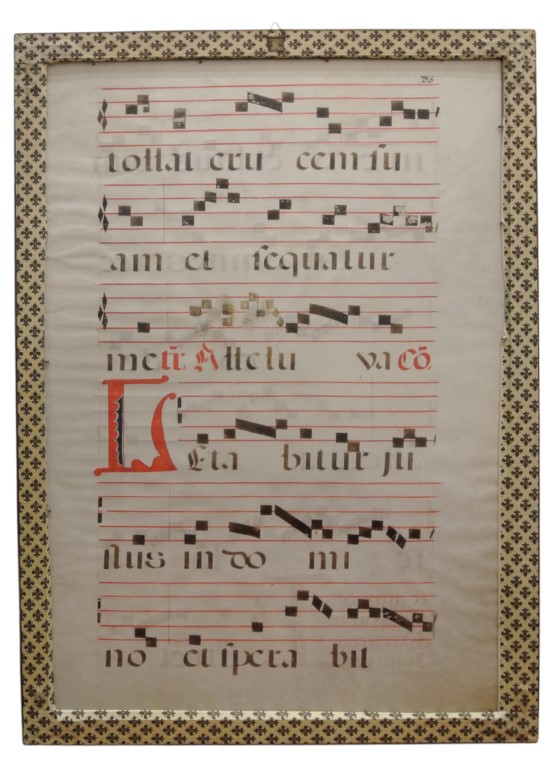 tollat cru cem su
am et sequatur
me tr̃ Allelu ya Cõ
LEta bitur ju
stus in do mi
no et spera bit